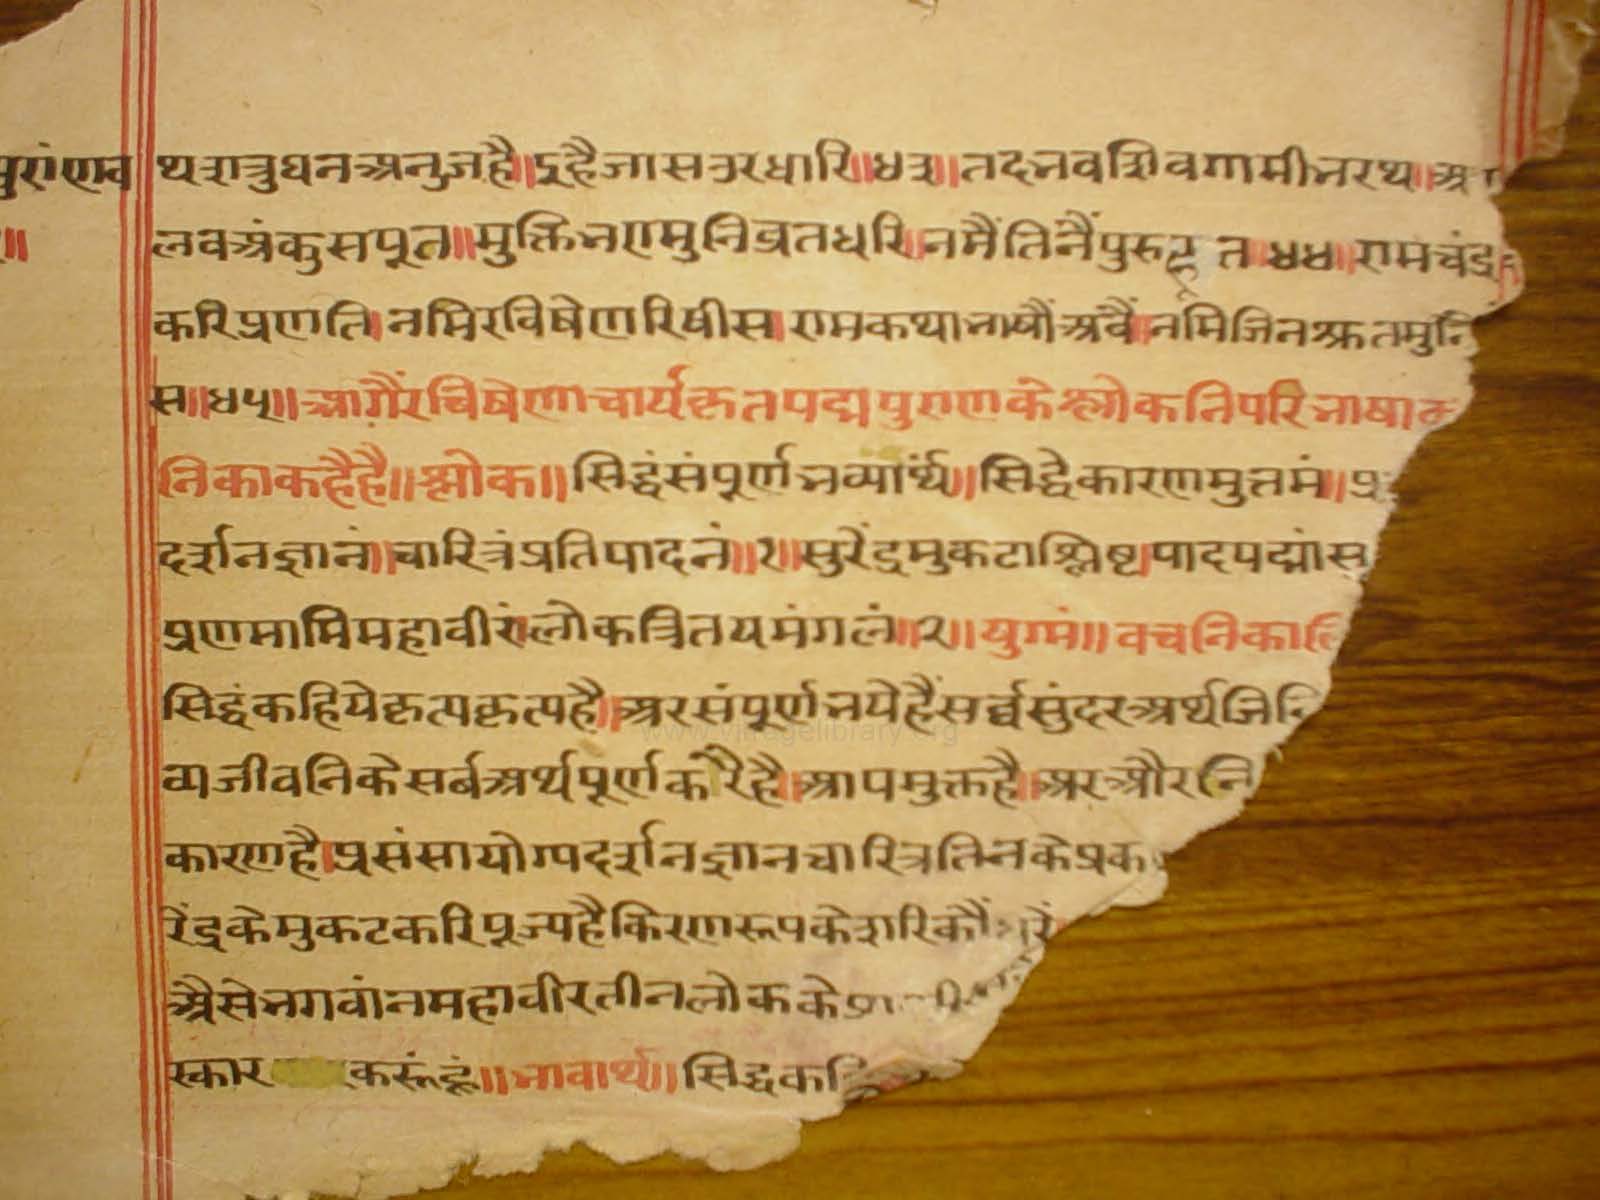 पुरांणव
॥
थशत्रुघनअनुजहै॥इहैजासतरधारि॥४३॥तदनवशिवगामीभरथ॥अ
लवअंकुसपूत॥मुक्तिभएमुनिव्रतधरि।नमैंतिनैंपुरुहूत॥४४॥रामचंद्र
करिप्रणति।नमिरविषेणरिषीस।रामकथाभाषौंअवैं।नमिजिनश्रुतमुनि
स॥४५॥आगैंरविषेणाचार्यकृतपद्मपुराणकेश्लोकतिपरिभाषाव
निकाकहैहै॥श्लोक॥सिद्धंसंपूर्णभव्यार्थं॥सिद्धेकारणमुत्तमं॥प्र
दर्शनज्ञानं॥चारित्रंप्रतिपादनं॥१॥सुरेंद्रमुकटाश्लिष्ट।पादपद्मांस
प्रणमामिमहावीरं।लोकत्रितयमंगलं॥२॥युग्मं॥वचनिका
सिद्धंकहियेकृत्यकृत्यहै।अरसंपूर्णभयेहैंसर्व्वसुंदरअर्थजिनि
व्यजीवनिकेसर्बअर्थपूर्णकरैहै।आपमुक्तहै।अरऔरनि
कारणहै।प्रसंसायोग्यदर्शनज्ञानचारित्रतिनकेप्रक
रेंद्रकेमुकटकरिपूज्यहैकिरणरूपकेशरिकौं
अैसेभगवांनमहावीरतीनलोकके
स्कार करूंहूं॥भावार्थ॥सिद्धकहि
www.vitragelibrary.org